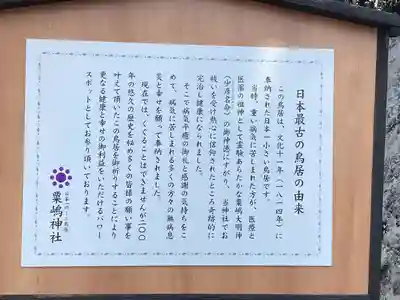 日本最古の鳥居の由来
この鳥居は、文化十一年(一八一四年)に
奉納された日本一小さい鳥居です。
当時、重い病気に苦しまれた方が、医療と
医薬の祖神として霊験あらたかな粟嶋大明神
(少彦名命)の御神徳にすがり、当神社でお
祓いを受け熱心に信仰されたところ奇跡的に
完治し健康になられました。
そこで病気平癒の御礼と感謝の気持ちをこ
めて、病気に苦しまれる多くの方々の無病息
災と幸せを願って奉納されました。
現在では、くぐることはできませんが二〇〇
年の悠久の歴史を秘め多くの皆様の願い事を
叶えて頂いたこの鳥居を御祈りすることにより
更なる健康と幸せの御利益をいただけるパワー
スポットとしてお参り頂いております。
粟嶋神社